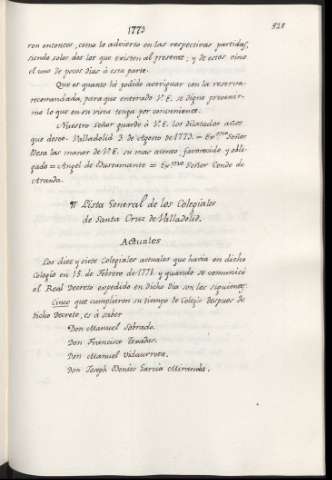 1773
528
ron entonces, como lo advierto en las respectivas partidas,
siendo solos dos los que existen al presente; y de estos vino
el uno de pocos dias á esta parte.
Que es quanto hé podido averiguar con la reserva
recomendada, para que enterado V. E. se digne prevenir-
me lo que en su vista tenga por conveniente.
Nuestro Señor guarde á V. E. los dilatados años
que deseo. Valladolid 3. de Agosto de 1773. = Exmo Señor
Besa las manos de V. E. su mas atento, favorecido y obli-
gado = Angel de Bustamante = Exmo Señor Conde de
Aranda.
¶ Lista General de los Colegiales
de Santa Cruz de Valladolid.
Actuales
Los diez y siete Colegiales actuales que havia en dicho
Colegio en 15. de Febrero de 1771. y quando se comunicó
el Real Decreto expedido en dicho dia son los siguientes:
Cinco que cumplieron su tiempo de Colegio despues de
dicho Decreto, es á saber
Don Manuel Sobrado.
Don Francisco
Don Manuel Vidaurreta.
Don Joseph Mendez Garcia Miranda.